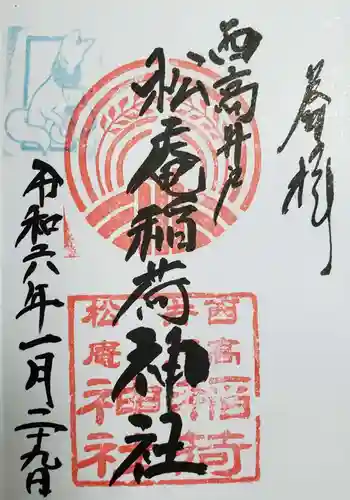 奉拝
西高井戸
松庵稲荷神社
令和六年一月二十九日
西高
井戸
稲荷
松庵
神社